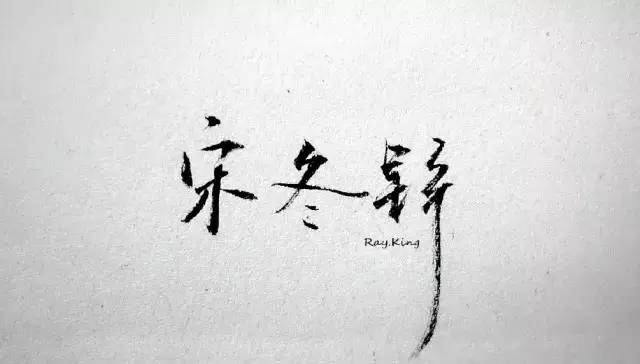 宋冬野
Ray.King